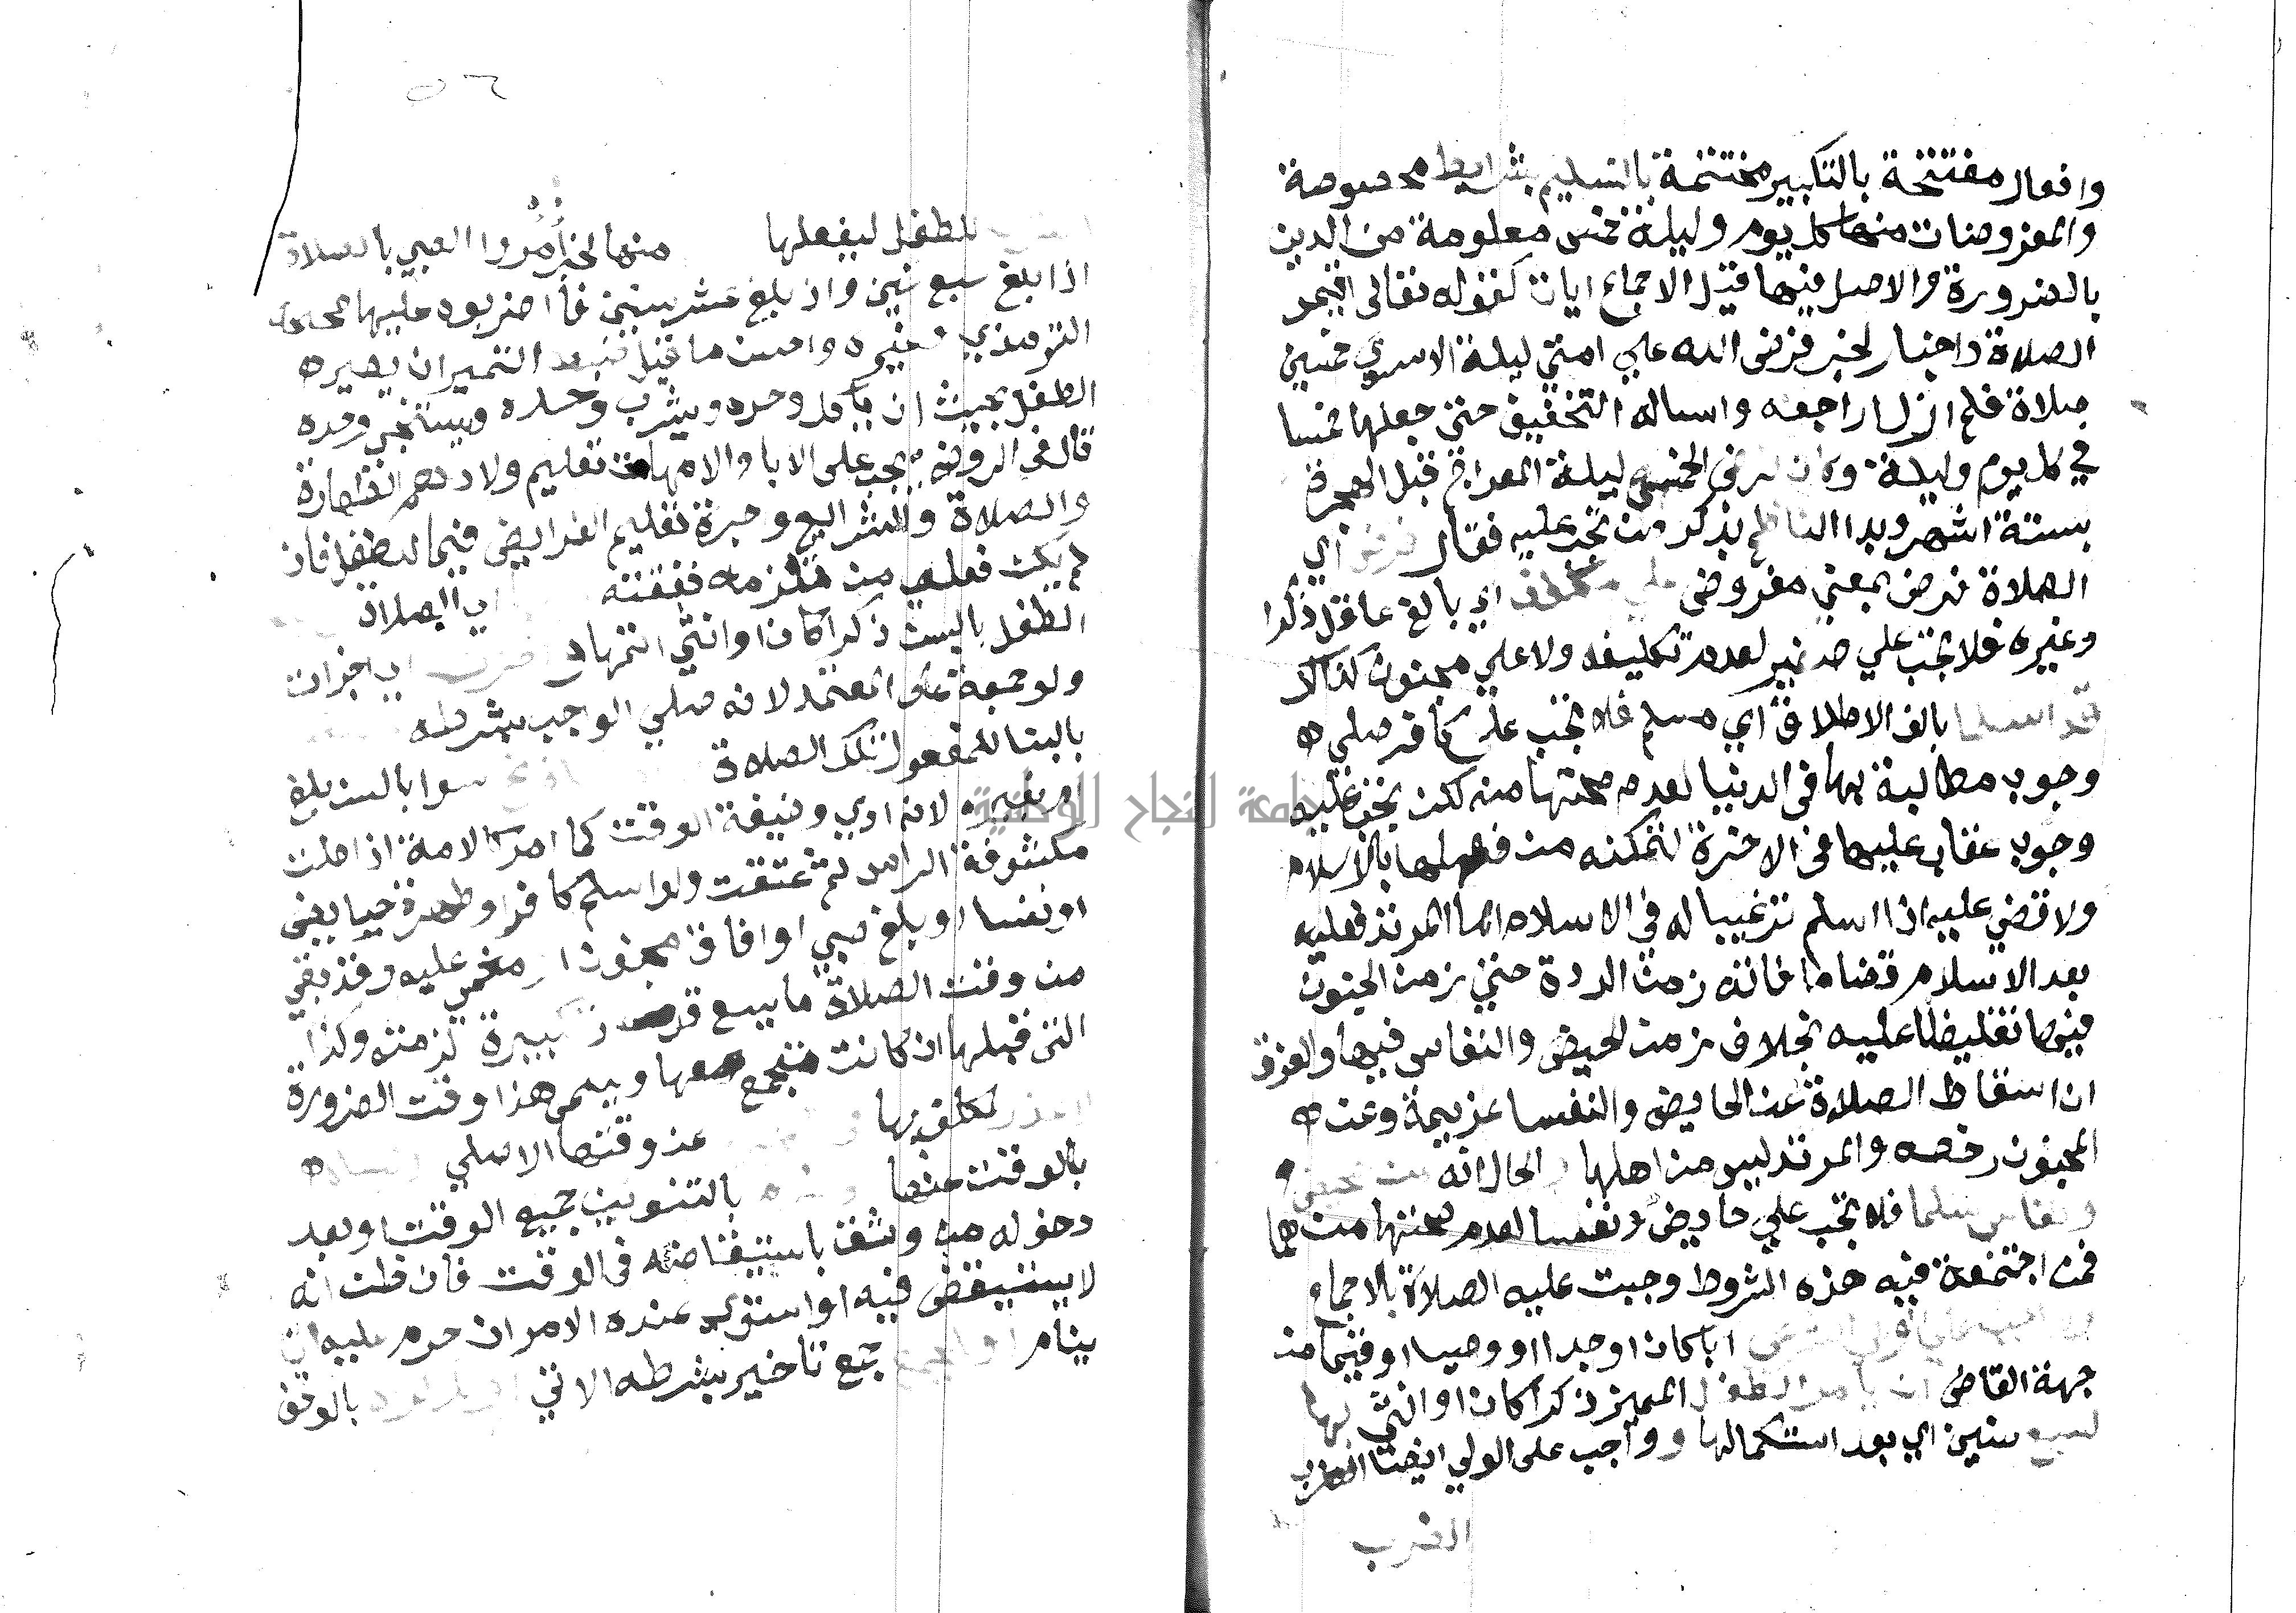 وافعال مفتتحة بالتكبير مختتمة بالتسليم بشرايط مخصوصة
والمفروضات منها كل يوم وليلة خمس معلومة من الدين
بالضرورة والاصل فيها قبل الاجماع ايات كقوله تعالى اقيمو
الصلاة واخبار لخبر فرض الله علي امتي ليلة الاسري خمسين
صلاة فلم ازل اراجعه واساله التخفيف حتي جعلها خمسا
في كل يوم وليلة وكان فرض الخمس ليلة المعراج قبل الهجرة
بستة اشهر وبدا الناظم بذكر من تجب عليه فقال فرض اي
الصلاة فرض بمعني مفروض علي مكلف اي بالغ عاقل ذكرا
وغيره فلا تجب علي صغير لعدم تكليفه ولا علي مجنون لذلك
قد اسلما بالف الاطلاق اي مسلم فلا تجب علي كافر صلي
وجوب مطالبة بها في الدنيا لعدم صحتها منه لكن تجب عليه
وجوب عقاب عليها في الاخرة لتمكنه من فعلها بالاسلام
ولا قضي عليه اذا اسلم ترغيبا له في الاسلام اما المرتد فعليه
بعد الاسلام قضاء ما فاته زمن الردة حتي زمن الجنون
فيها تغليظا عليه بخلاف زمن الحيض والنفاس فيها والفرق
ان اسقاط الصلاة عن الحايض والنفسا عزيمة وعن
المجنون رخصه والمرتد ليس من اهلها والحال انه من حيض
ونفاس سلما فلا تجب علي حايض ونفسا لعدم صحتها منهما
فمن اجتمعة فيه هذه الشروط وجبت عليه الصلاة بالاجماع
ابا كان او جدا او وصيا او قيما من
جهة القاضي ان يامر الطفل المميز ذكرا كان او انثي بها
لسبع سنين اي بعد استكمالها وواجب على الولي ايضا الضرب
الضرب
٥٦
للطفل ليفعلها منها لخبر مُروا الصبي بالصلاة
اذا بلغ سبع سنين واذ بلغ عشر سنين فاضربوه عليها صححه
الترمذي وغيره واحسن ما قيل في حد التمييز ان يصير
الطفل بحيث ان ياكل وحده ويشرب وحده ويستنجي وحده
قال في الروضة يجب على الابا والامهات تعليم ولادهم الطهارة
والصلاة والشرايع واجرة تعليم الفرايض فيما للطفل فان
لم يكن فعلي من تلزمه نفقته اي الصلاة
الطفل بالسن ذكرا كان او انثي اتمها اي اجزات
ولو جمعة على المعتمد لانه صلي الواجب بشرطه
بالبنا للمفعول تلك الصلاة سوا بالسن بلغ
او بغيره لانه ادي وظيفة الوقت كما امر كالامة اذا صلت
مكشوفة الراس ثم عتقت ولو اسلم كافر او طهرة حيا يعني
او نفسا او بلغ صبي او افاق مجنون او مغمي عليه وقد بقي
من وقت الصلاة ما يسع قدر تكبيرة لزمته وكذا
التي قبلها ان كانت تجمع معها ويسمي هذا وقت الضرورة
لمكلف بها عن وقتها الاصلي
بالوقت عنها بالتنوين جميع الوقت او بعد
دخوله من وثق باستيقاضه في الوقت فان ظن انه
لا يستيقض فيه او استوي عنده الامران حرم عليه ان
ينام جمع تاخير بشرطه الاتي بالوقف
جامعة النجاح الوطنية